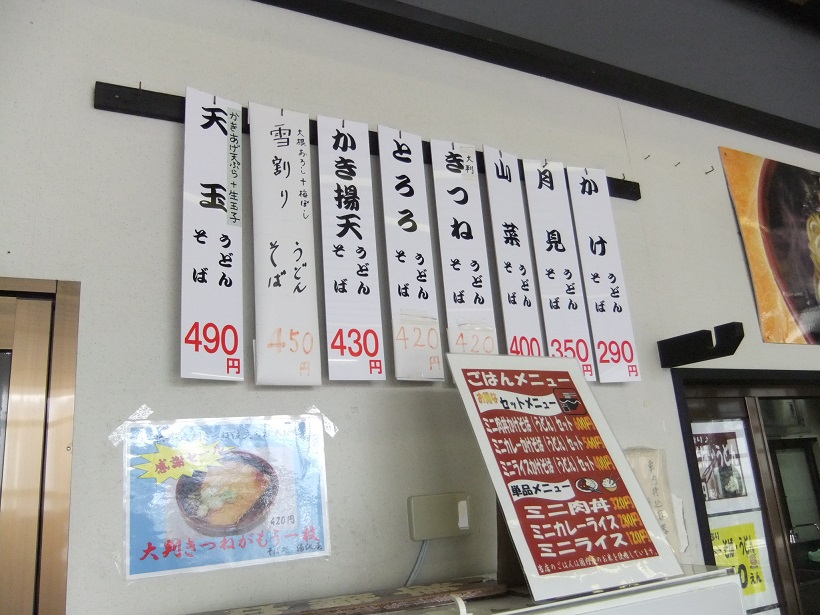 天玉
かきあげ天ぷら+生玉子
うどん
そば
490円
雪割り
大根おろし+梅ぼし
うどん
そば
450円
かき揚天
うどん
そば
430円
とろろ
うどん
そば
420円
大判
きつね
うどん
そば
420
山菜
うどん
そば
400
月見
うどん
そば
350円
かけ
うどん
そば
290円
ごはんメニュー
お得な
セットメニュー
ミニ肉丼かけそば(うどん)セット
ミニカレーかけそば(うどん)セット
ミニライスかけそば(うどん)セット
単品メニュー
ミニ肉丼 320円
ミニカレーライス 280円
ミニライス 120円
感謝セール
420円
大判きつねがもう一枚
うどん
そば・うどん